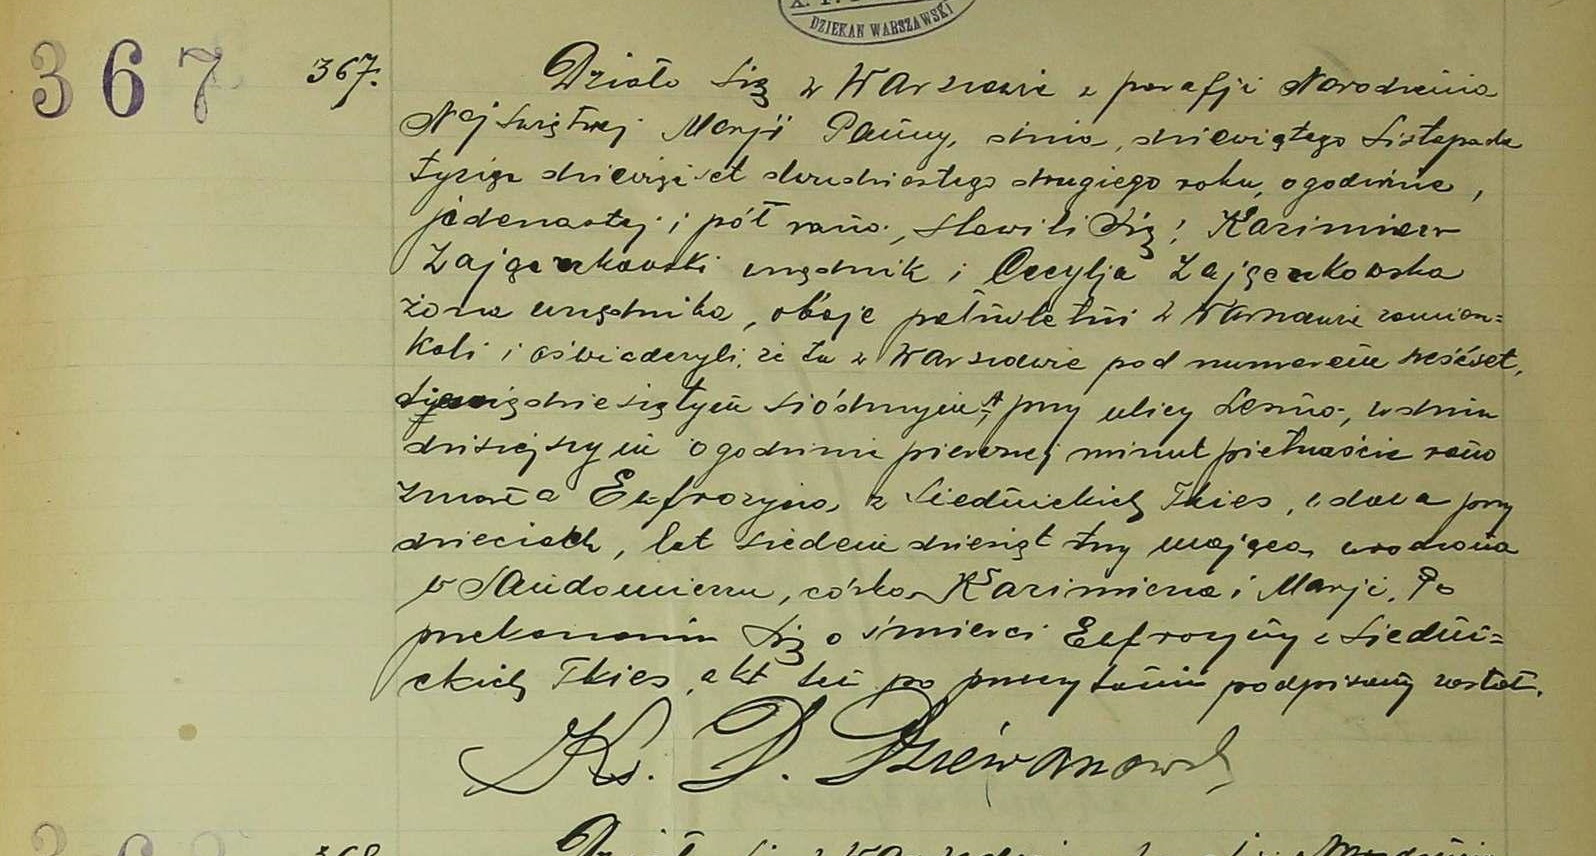 DZIEKAN WARSZAWSKI
367 367. Działo się w Warszawie w parafji Narodzenia
Najświętszej Marji Panny, dnia dziewiątego Listopada
tysiąc dziewięćset dwudziestego drugiego roku, o godzinie,
jedenastej i pół rano, stawili się: Kazimierz
Zajączkowski urzędnik i Cecylja Zajączkowska
żona urzędnika, oboje pełnoletni w Warszawie zamiesz=
kali i oświadczyli, że tu w Warszawie pod numerem sześćset,
dziewięćdziesiątym siódmym A, przy ulicy Leszno, w dniu
dzisiejszym o godzinie pierwszej minut piętnaście rano
zmarła Eufrozyna z Siednickich Tkies, wdowa przy
dzieciach, lat siedemdziesiąt trzy mająca, urodzona
w Sandomierzu, córka Kazimierza i Marji. Po
przekonaniu się o śmierci Eufrozyny z Siedni=
ckich Tkies, akt ten po przeczytaniu podpisany został.
Ks. D. Dziewanowski
368 368. Działo się w Warszawie w parafji Narodzenia